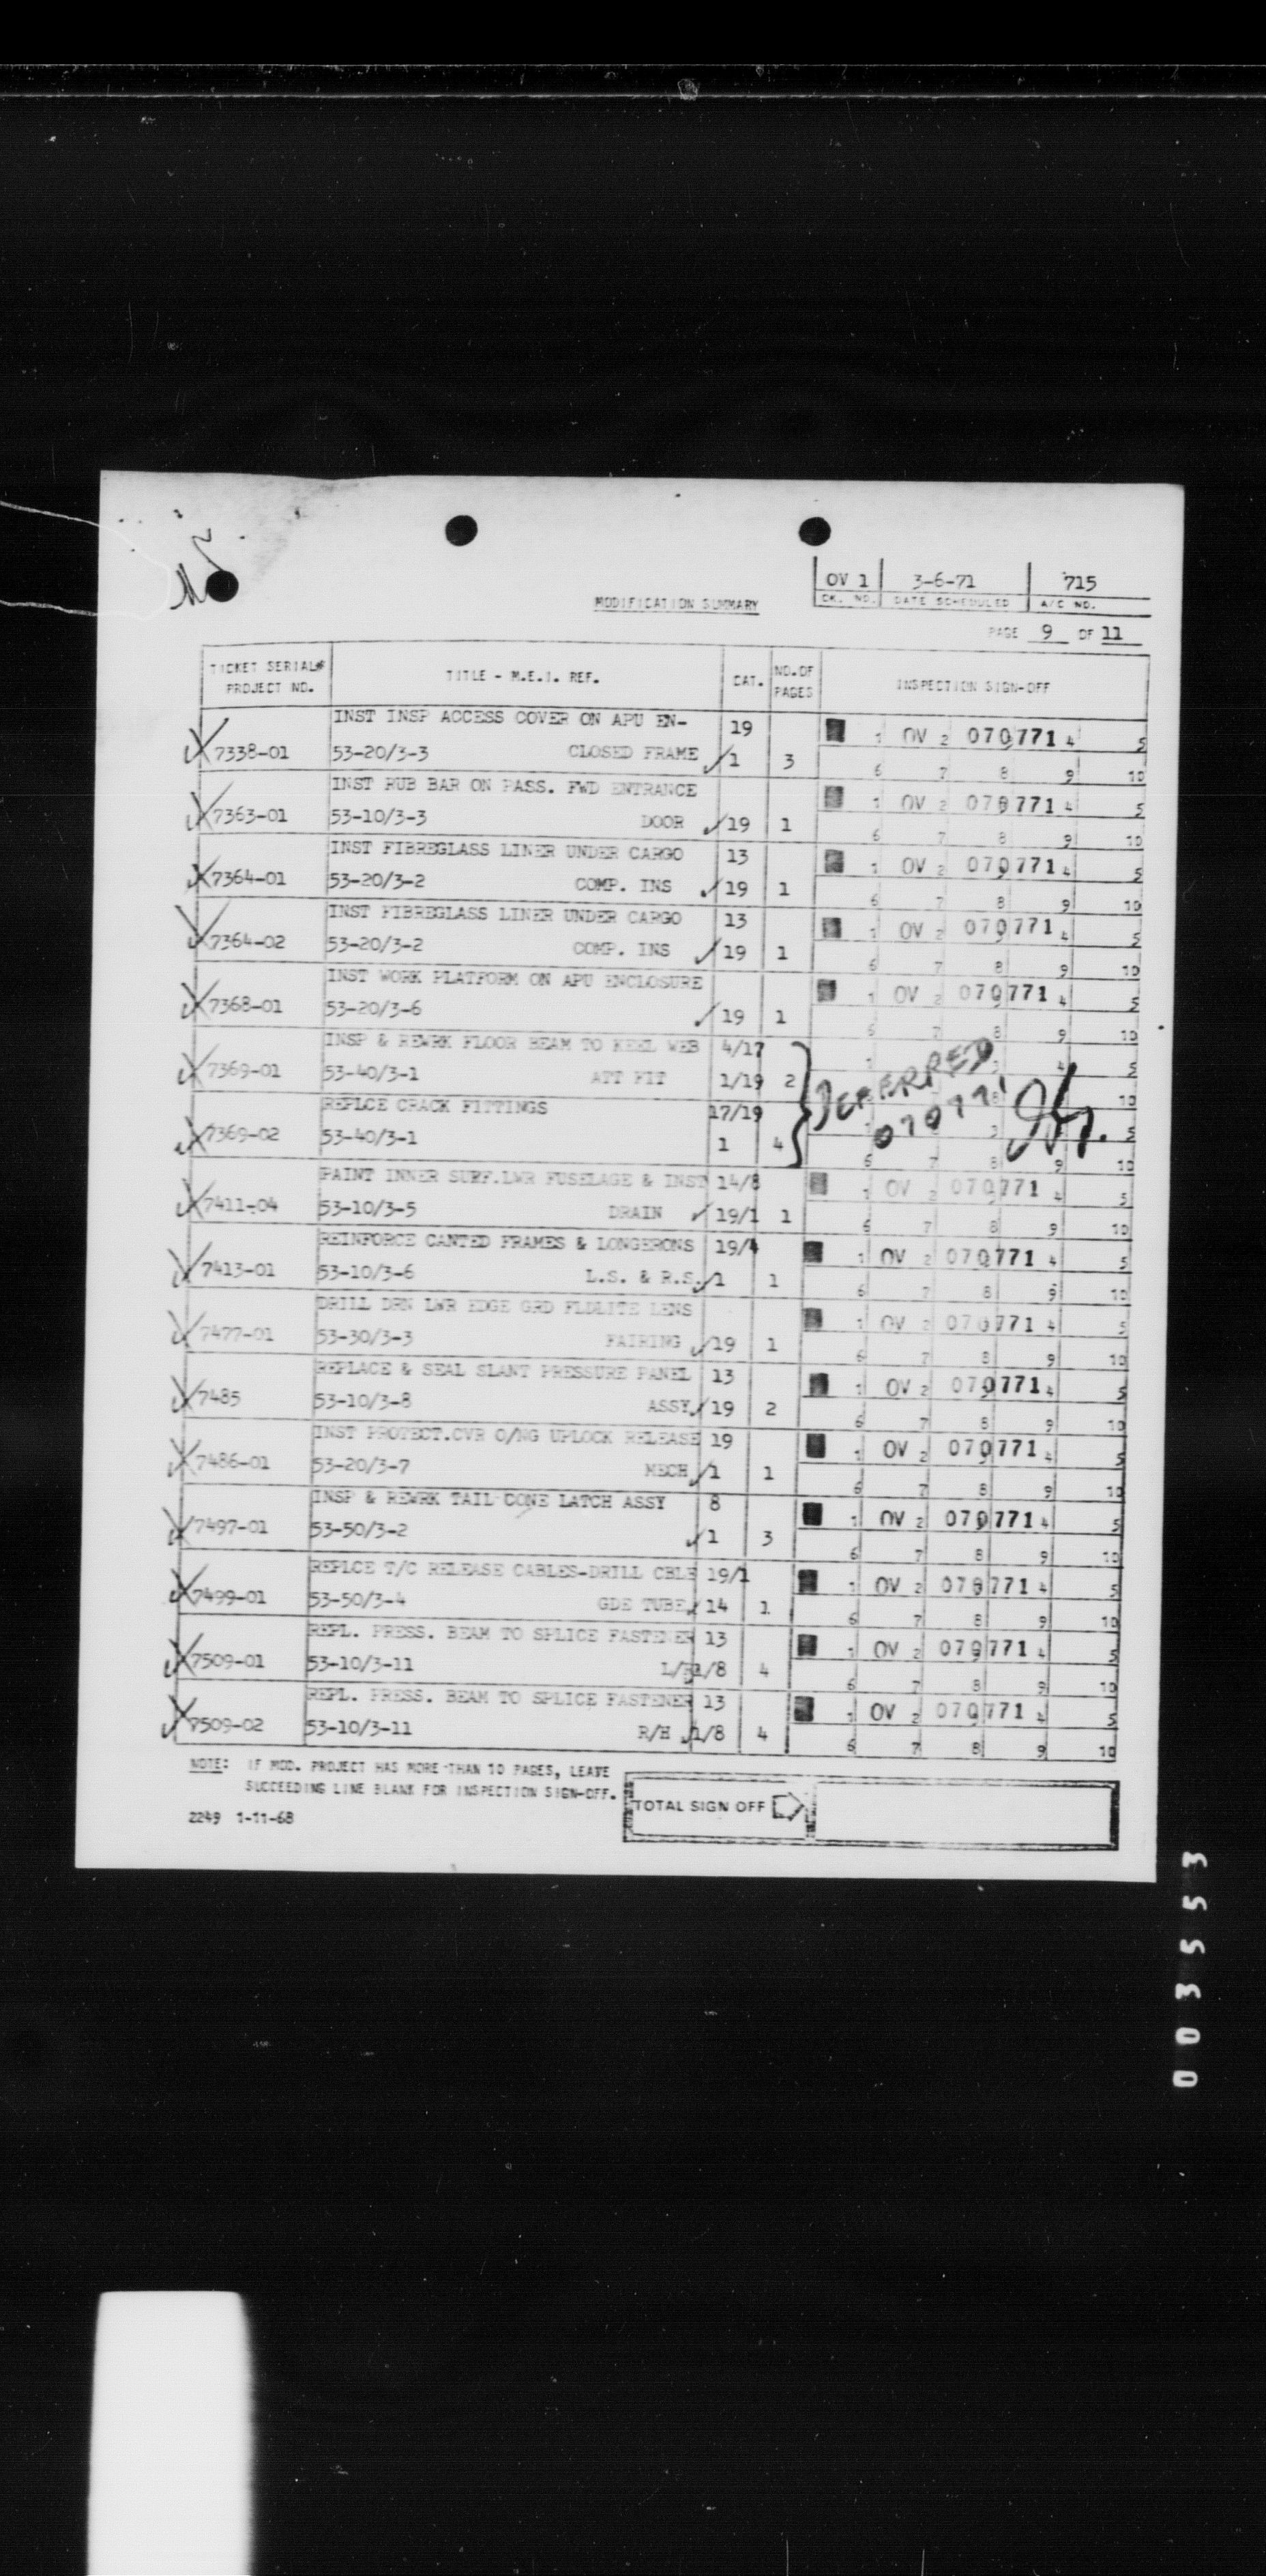 OV 1 3-6-71 715
CK. NO. DATE SCHEDULED A/C NO.
MODIFICATION SUMMARY
PAGE 9 OF 11
TICKET SERIAL# PROJECT NO. TITLE - M.E.I. REF. CAT. NO.OF PAGES INSPECTION SIGN-OFF
INST INSP ACCESS COVER ON APU EN- 19 1 OV 2 070771 4 5
7338-01 53-20/3-3 CLOSED FRAME 1 3 6 7 8 9 10
INST RUB BAR ON PASS. FWD ENTRANCE 1 OV 2 070771 4 5
7363-01 53-10/3-3 DOOR 19 1 6 7 8 9 10
INST FIBREGLASS LINER UNDER CARGO 13 1 OV 2 070771 4 5
7364-01 53-20/3-2 COMP. INS 19 1 6 7 8 9 10
INST FIBREGLASS LINER UNDER CARGO 13 1 OV 2 070771 4 5
7364-02 53-20/3-2 COMP. INS 19 1 6 7 8 9 10
INST WORK PLATFORM ON APU ENCLOSURE 1 OV 2 070771 4 5
7368-01 53-20/3-6 19 1 6 7 8 9 10
INSP & REWRK FLOOR BEAM TO KEEL WEB 4/17 4 5
7369-01 53-40/3-1 ATT FIT 1/19 2 DEFERRED 8 10
REPLCE CRACK FITTINGS 17/19 070771 5
7369-02 53-40/3-1 1 4 6 7 8 9 10
PAINT INNER SURF.LWR FUSELAGE & INST 14/8 1 OV 2 070771 4 5
7411-04 53-10/3-5 DRAIN 19/1 1 6 7 8 9 10
REINFORCE CANTED FRAMES & LONGERONS 19/4 1 OV 2 070771 4 5
7413-01 53-10/3-6 L.S. & R.S. 1 1 6 7 8 9 10
DRILL DRN LWR EDGE GRD FLDLITE LENS 1 OV 2 070771 4 5
7477-01 53-30/3-3 FAIRING 19 1 6 7 8 9 10
REPLACE & SEAL SLANT PRESSURE PANEL 13 1 OV 2 070771 4 5
7485 53-10/3-8 ASSY. 19 2 6 7 8 9 10
INST PROTECT.CVR O/NG UPLOCK RELEASE 19 1 OV 2 070771 4 5
7486-01 53-20/3-7 MECH 1 1 6 7 8 9 10
INSP & REWRK TAIL CONE LATCH ASSY 8 1 OV 2 070771 4 5
7497-01 53-50/3-2 1 3 6 7 8 9 10
REPLCE T/C RELEASE CABLES-DRILL CBLE 19/1 1 OV 2 070771 4 5
7499-01 53-50/3-4 GDE TUBE 14 1 6 7 8 9 10
REPL. PRESS. BEAM TO SPLICE FASTENER 13 1 OV 2 070771 4 5
7509-01 53-10/3-11 1/8 4 6 7 8 9 10
REPL. PRESS. BEAM TO SPLICE FASTENER 13 1 OV 2 070771 4 5
7509-02 53-10/3-11 R/H 1/8 4 6 7 8 9 10
NOTE: IF MOD. PROJECT HAS MORE THAN 10 PAGES, LEAVE
SUCCEEDING LINE BLANK FOR INSPECTION SIGN-OFF.
TOTAL SIGN OFF
2249 1-11-68
003553